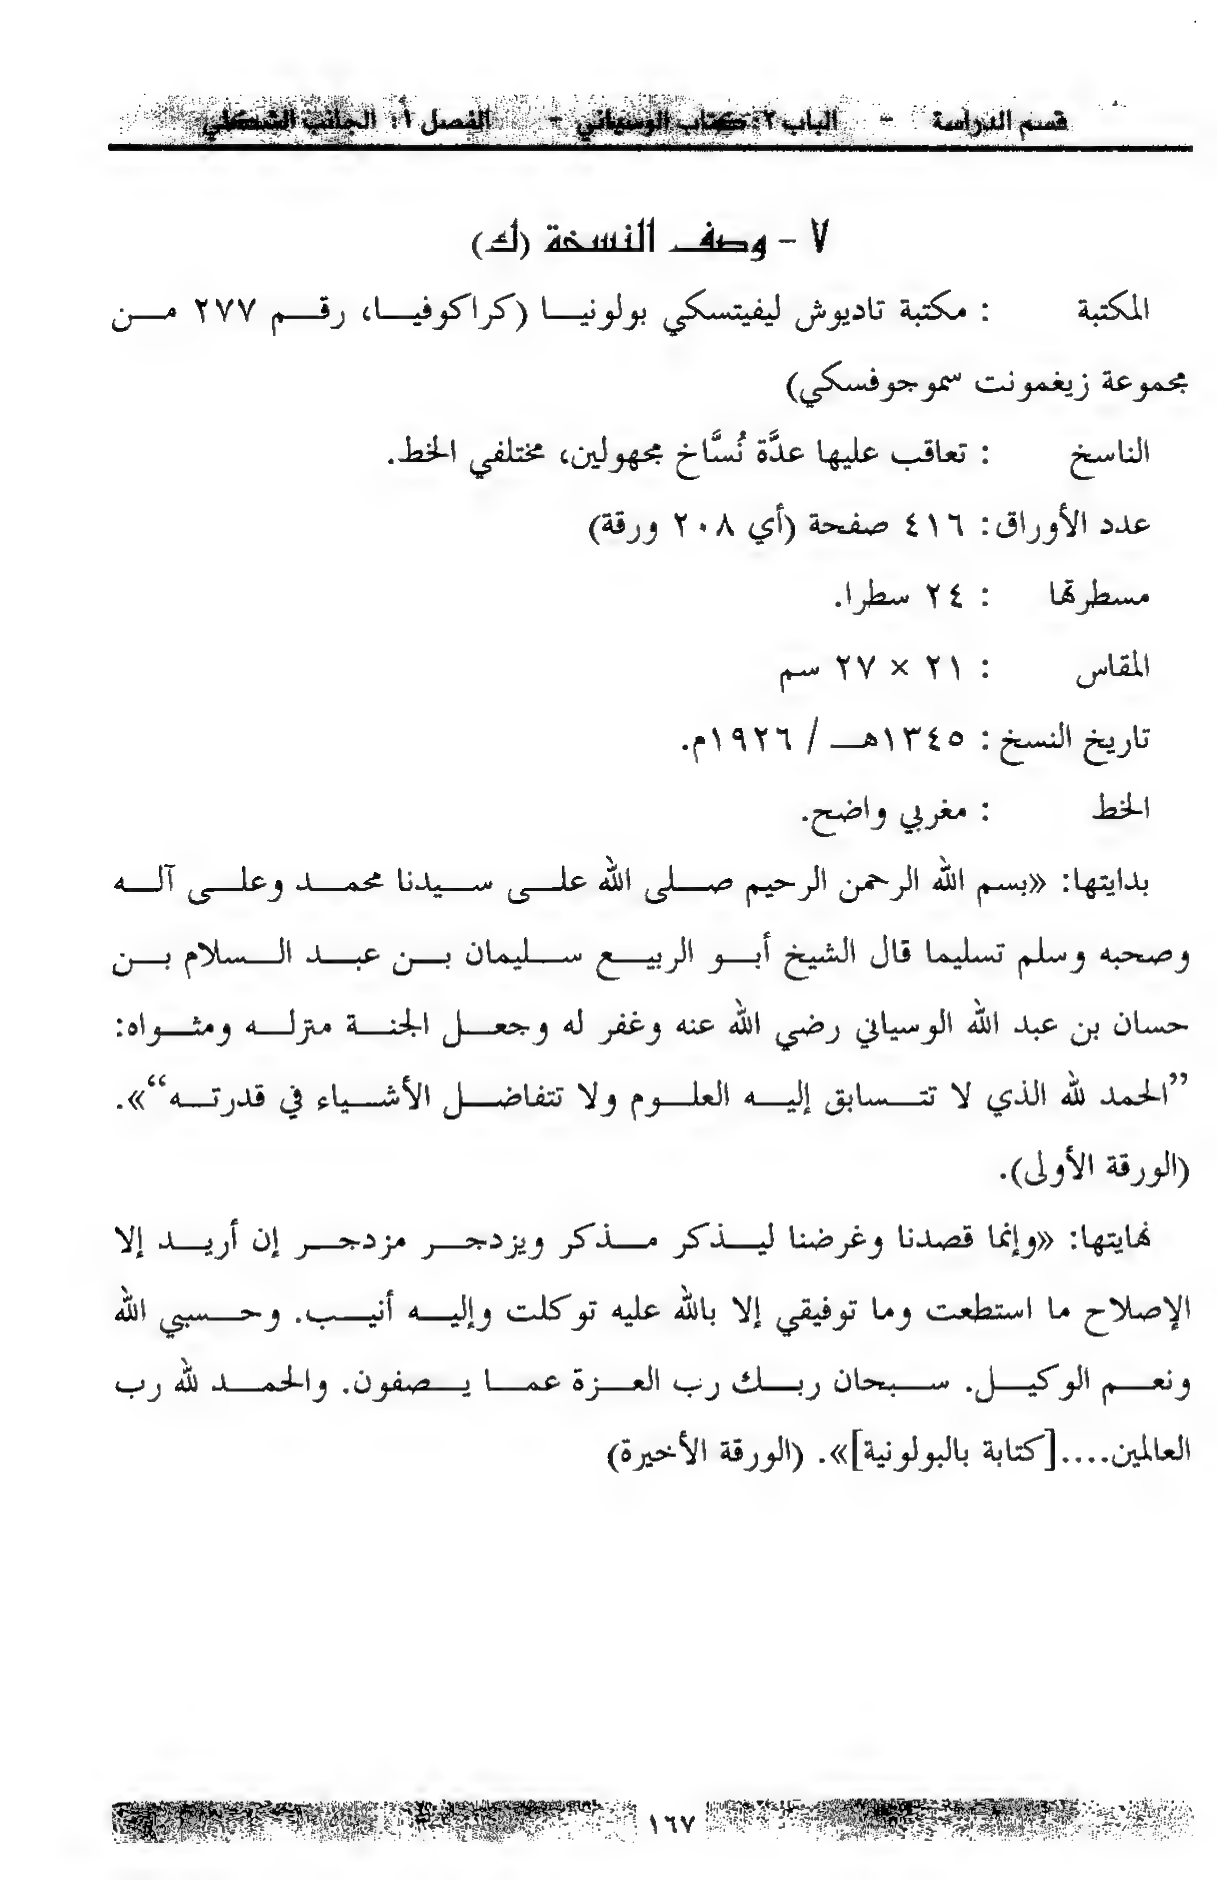 قسم الدراسة - الباب ٢: كتاب الوسياني - الفصل ١: الجانب الشكلي
٧ - وصف النسخة (ك)
المكتبة : مكتبة تاديوش ليفيتسكي بولونيا (كراكوفيا، رقم ٢٧٧ من
مجموعة زيغمونت سموجوفسكي)
الناسخ : تعاقب عليها عدَّة نُسَّاخ مجهولين، مختلفي الخط.
عدد الأوراق: ٤١٦ صفحة (أي ٢٠٨ ورقة)
مسطرتها : ٢٤ سطرا.
المقاس : ٢١ × ٢٧ سم
تاريخ النسخ : ١٣٤٥هـ / ١٩٢٦م.
الخط : مغربي واضح.
بدايتها: «بسم الله الرحمن الرحيم صلى الله على سيدنا محمد وعلى آله
وصحبه وسلم تسليما قال الشيخ أبو الربيع سليمان بن عبد السلام بن
حسان بن عبد الله الوسياني رضي الله عنه وغفر له وجعل الجنة منزله ومثواه:
”الحمد لله الذي لا تتسابق إليه العلوم ولا تتفاضل الأشياء في قدرته“».
(الورقة الأولى).
نهايتها: «وإنما قصدنا وغرضنا ليذكر مذكر ويزدجر مزدجر إن أريد إلا
الإصلاح ما استطعت وما توفيقي إلا بالله عليه توكلت وإليه أنيب. وحسبي الله
ونعم الوكيل. سبحان ربك رب العزة عما يصفون. والحمد لله رب
العالمين....[كتابة بالبولونية]». (الورقة الأخيرة)
١٦٧